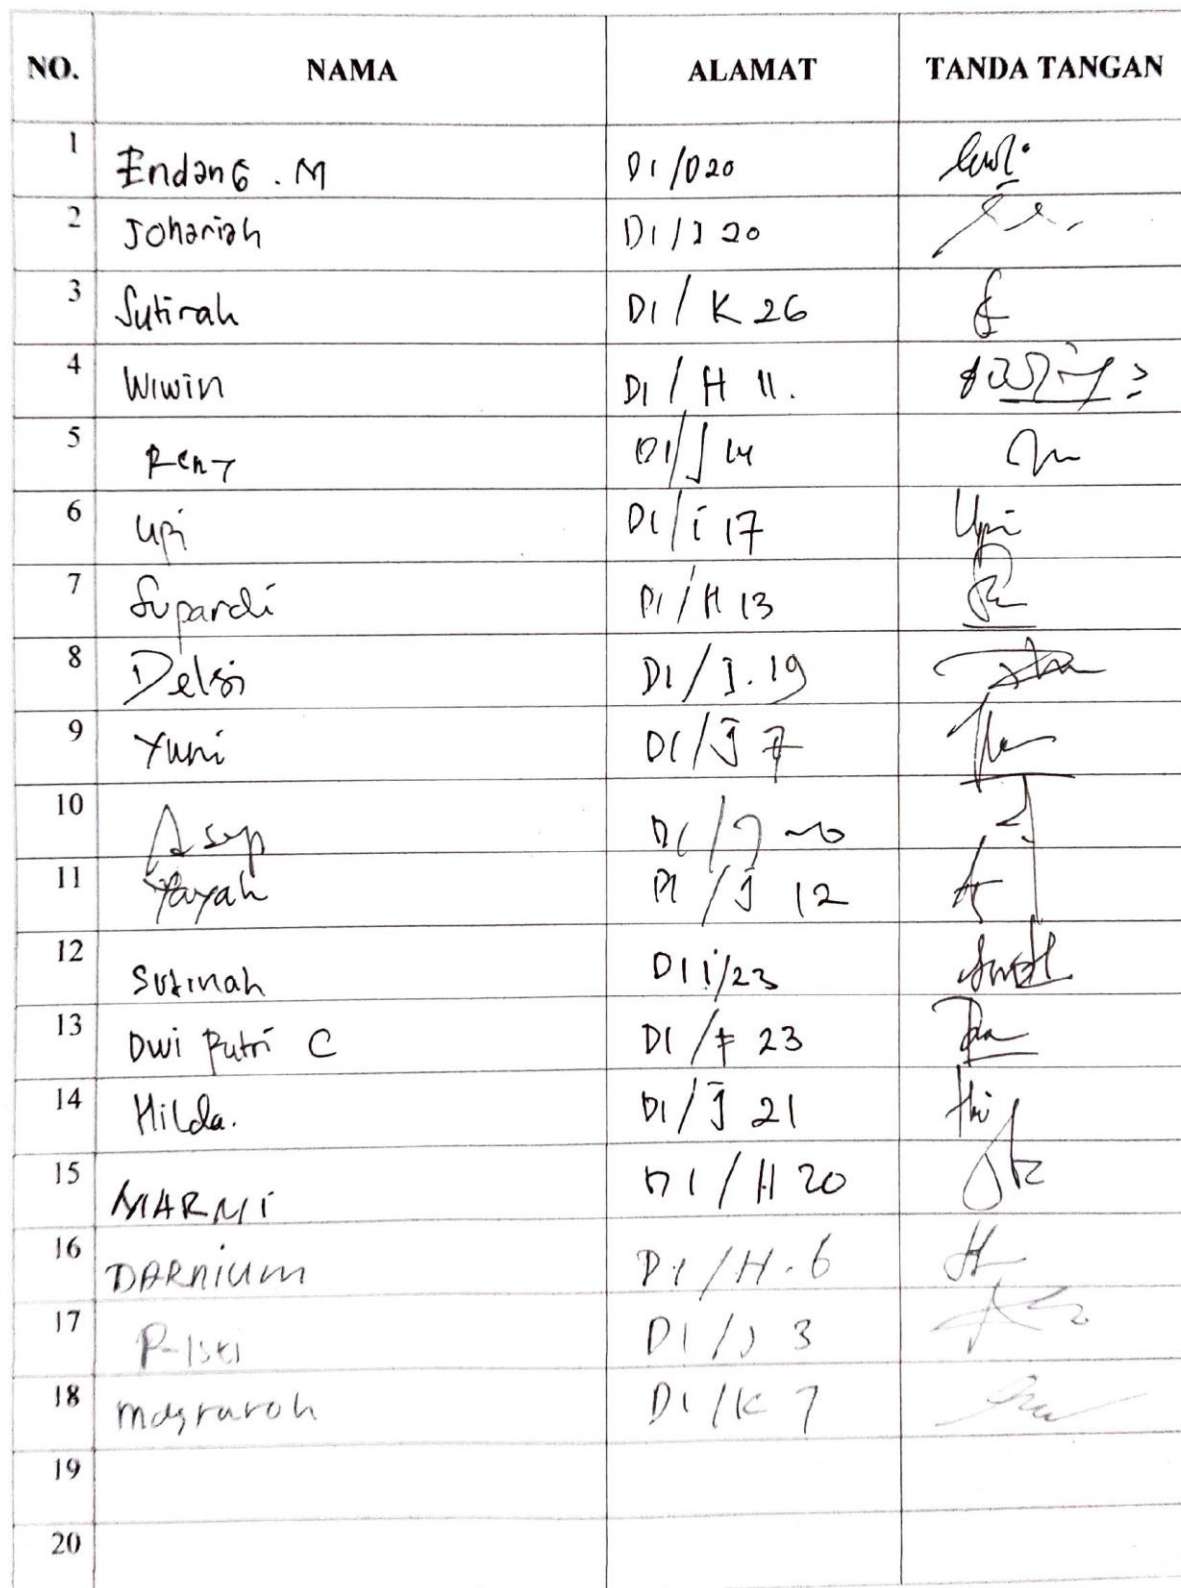 NO. NAMA ALAMAT TANDA TANGAN
1 Endang. M D1/D20
2 Johariah D1/J 20
3 Sutirah D1/K 26
4 Wiwin D1/H 11.
5 Reny D1/J 14
6 Upi D1/i 17 Upi
7 Supardi D1/H 13
8 Delsi D1/J.19
9 Yuni D1/J 7
10 Asep
11 Yayah D1/J 12
12 Sutinah D1 i/23
13 Dwi Putri C D1/F 23
14 Hilda. D1/J 21
15 MARNI D1/H 20
16 DARNIUM D1/H.6
17 D1/J 3
18 D1/K 7
19
20